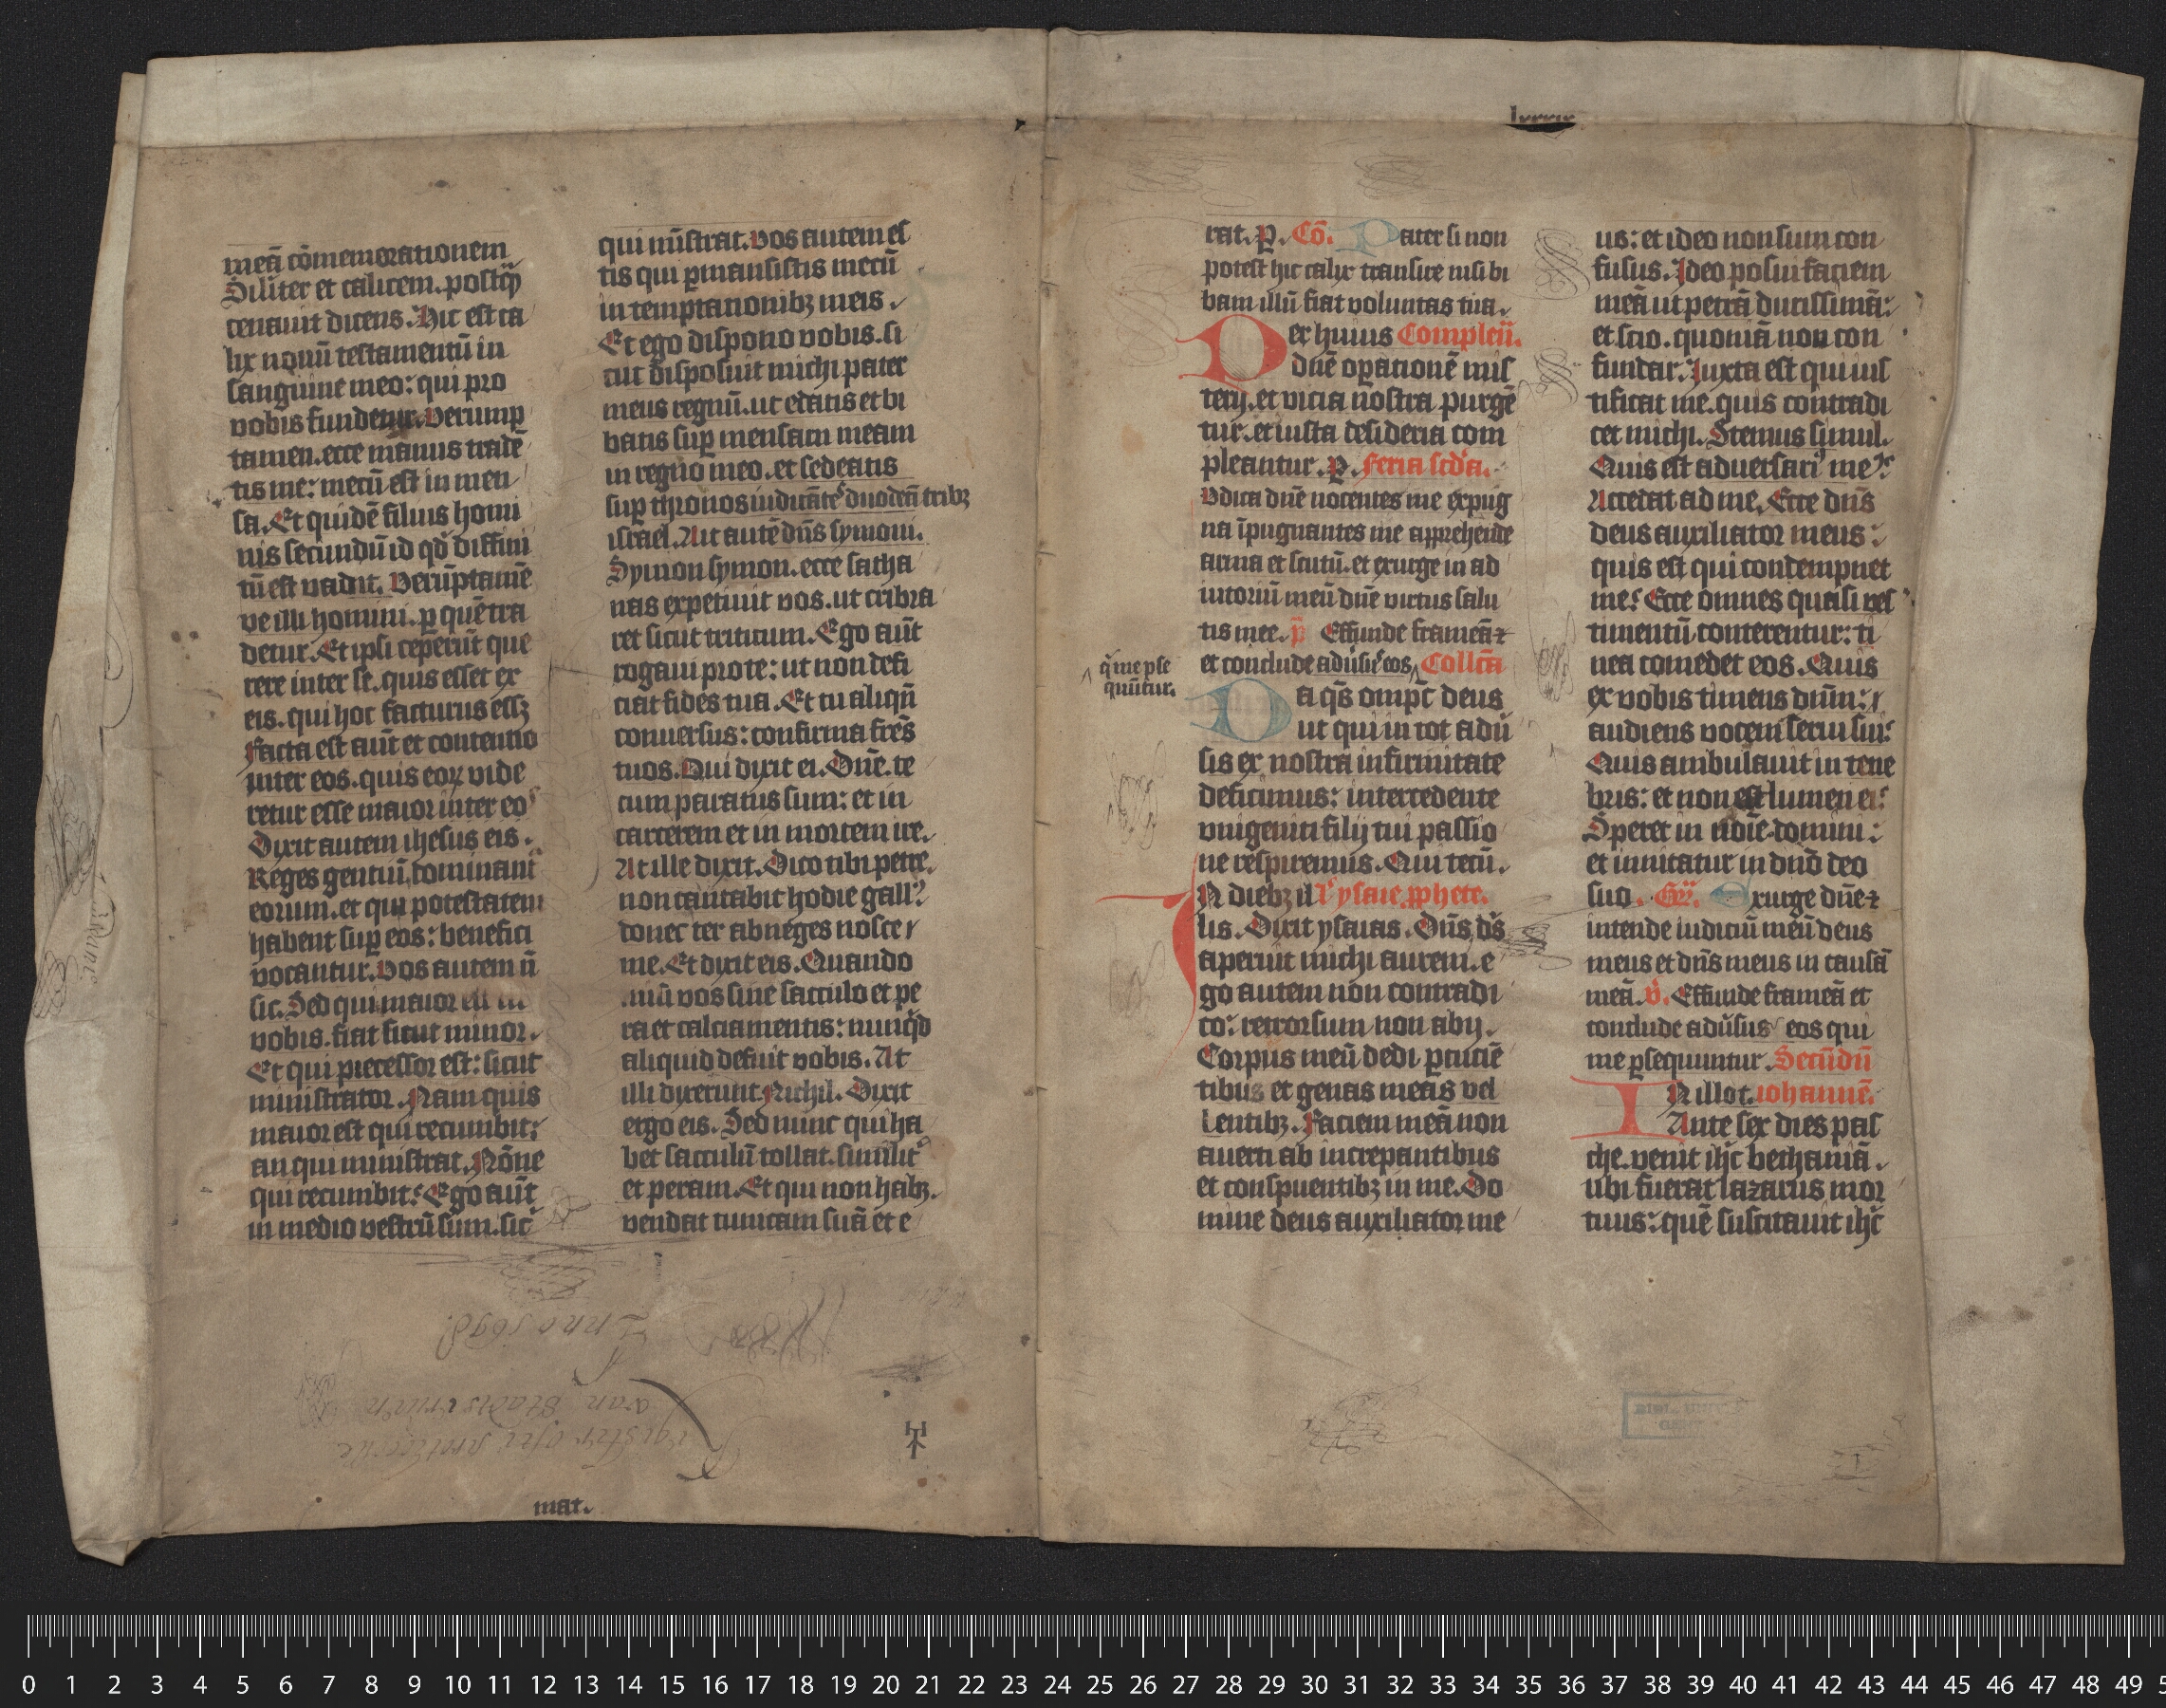 meā cōmemorationem
Silit̄er et calicem. postq̄
cenauit dicens. Hic est ca
lix nouū testamentū in
sanguine meo: qui pro
vobis fundetur. Verump̄
tamen. ecce manus tradē
tis me: mecū est in men
sa. Et quidē filius homi
nis secundū id qd̄ diffini
tū est vadit. Verūptamē
ve illi homini. ꝑ quē tra
detur. Et ipsi ceperūt que
rere inter se. quis esset ex
eis. qui hoc facturus essꝫ
Facta est aūt et contentio
inter eos. quis eoꝝ vide
retur esse maior inter eos
Dixit autem ihesus eis.
Reges gentiū dominant̄
eorum. et qui potestatem
habent suꝑ eos: benefici
vocantur. Vos autem nō
sic. Sed qui maior est in
vobis. fiat sicut minor.
Et qui precessor est: sicut
ministrator. Nam quis
maior est qui recumbit:
an qui ministrat. Nōne
qui recumbit: Ego aūt
in medio vestrū sum. sic̄
qui mīstrat. Vos autem es
tis qui ꝑmansistis mecū
in temptationibꝫ meis.
Et ego dispono vobis. si
cut disposuit michi pater
meus regnū. ut edatis et bi
batis suꝑ mensam meam
in regno meo. et sedeatis
suꝑ thronos iudicātes duodeci tribꝫ
israel. Ait autē dn̄s symoni.
Symon symon. ecce satha
nas expetiuit vos. ut cribra
ret sicut triticum. Ego aūt
rogaui pro te: ut non defi
ciat fides tua. Et tu aliqn̄
conuersus: confirma fr̄es
tuos. Qui dixit ei. Dn̄e. te
cum paratus sum: et in
carcerem et in mortem ire.
At ille dixit. Dico tibi petre.
non cantabit hodie gallꝰ
donec ter abneges nosce
me. Et dixit eis. Quando
misi vos sine sacculo et pe
ra et calciamentis: nunqd̄
aliquid defuit vobis. At
illi dixerunt. Nichil. Dixit
ergo eis. Sed nunc qui ha
bet sacculū tollat. similit̄
et peram. Et qui non habꝫ.
vendat tunicam suā et e
Anno 1698
Register
van
mat.
lxxxix
rat. P. Cō. Pater si non
potest hic calix transire nisi bi
bam illū fiat voluntas tua.
Per huius Compleñ.
dn̄e oꝑationē mis
terij. et vicia nostra purgē
tur. et iusta desideria com
pleantur. P. Feria scd̄a.
Udica dn̄e nocentes me expug
na īpugnantes me apprehende
arma et scutū. et exurge in ad
iutoriū meū dn̄e virtus salu
tis mee. p̄ Effunde frameā ⁊
et conclude adūsꝰ eos Collcā
q̄ me ꝑse
quūtur.
Da qs̄ omp̄c deus
ut qui in tot adū
sis ex nostra infirmitate
deficimus: intercedente
vnigeniti filij tui passio
ne respiremus. Qui tecū.
In diebꝫ il l' ysaie ꝓphete.
lis. Dixit ysaias. Dn̄s ds̄
aperuit michi aurem. e
go autem non contradi
co: retrorsum non abij.
Corpus meū dedi ꝑcuciē
tibus et genas meas vel
lentibꝫ. Faciem meā non
auerti ab increpantibus
et conspuentibꝫ in me. Do
mine deus auxiliator me
us: et ideo non sum con
fusus. Ideo posui faciem
meā ut petrā durissimā:
et scio. quoniā non con
fundar. Iuxta est qui ius
tificat me. quis contradi
cet michi. Stemus simul.
Quis est aduersariꝰ meꝰ
Accedat ad me. Ecce dn̄s
deus auxiliator meus:
quis est qui condempnet
me: Ecce omnes quasi ves
timentū conterentur: ti
nea comedet eos. Quis
ex vobis timens dn̄m:
audiens vocem serui sui:
Quis ambulauit in tene
bris: et non est lumen ei:
Speret in noīe domini:
et innitatur in dn̄o deo
suo. Gr̄. Exurge dn̄e ⁊
intende iudiciū meū deus
meus et dn̄s meus in causā
meā. v̄. Effunde frameā et
conclude adūsus eos qui
me ꝑsequuntur. Secūdū
In illo t. iohannē.
Ante sex dies pas
che. venit ihc̄ bethaniā.
ubi fuerat lazarus mor
tuus: quē suscitauit ihc̄
0 1 2 3 4 5 6 7 8 9 10 11 12 13 14 15 16 17 18 19 20 21 22 23 24 25 26 27 28 29 30 31 32 33 34 35 36 37 38 39 40 41 42 43 44 45 46 47 48 49